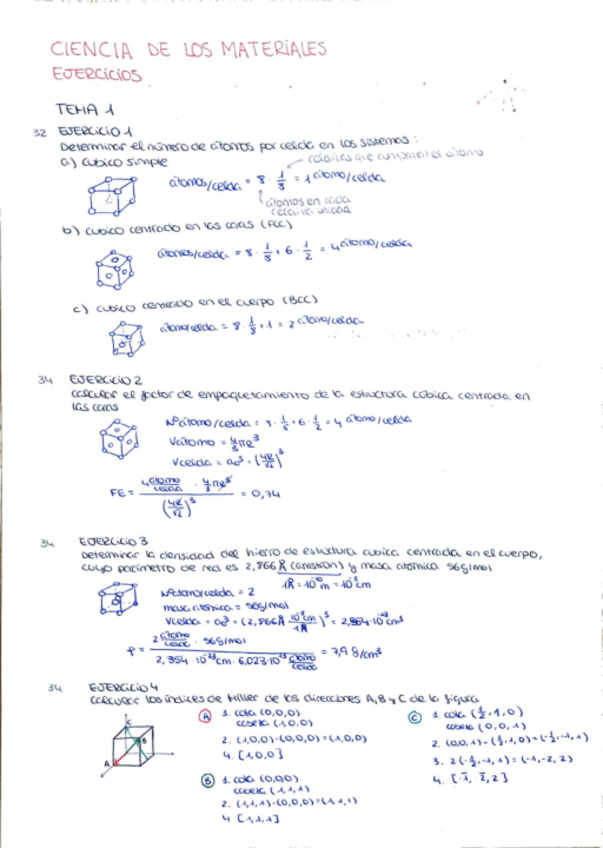 CIENCIA DE LOS MATERIALES
EJERCICIOS
TEMA 1
32 EJERCICIO 1
Determinar el número de átomos por celda en los sistemas:
a) cubico simple
átomos/celda = 8 · 1/8 = 1 átomo/celda
átomos en cada
b) cubico centrado en las caras (FCC)
átomos/celda = 8 · 1/8 + 6 · 1/2 = 4 átomo/celda
c) cubico centrado en el cuerpo (BCC)
átomo/celda = 8 · 1/8 + 1 = 2 átomo/celda
34 EJERCICIO 2
calcular el factor de empaquetamiento de la estructura cúbica centrada en
las caras
Nº átomo/celda = 8 · 1/8 + 6 · 1/2 = 4 átomo/celda
Vátomo = 4/3 πR³
Vcelda = a₀³ = (4R/√2)³
FE = (4 átomo/celda · 4/3 πR³) / (4R/√2)³ = 0,74
34 EJERCICIO 3
Determinar la densidad del hierro de estructura cubica centrada en el cuerpo,
cuyo parámetro de red es 2,866 Å (amstron) y masa atómica 56 g/mol
1Å = 10⁻¹⁰ m = 10⁻⁸ cm
Nº átomo/celda = 2
masa atómica = 56 g/mol
Vcelda = a₀³ = (2,866 Å · 10⁻⁸ cm / 1Å)³ = 2,354 · 10⁻²³ cm³
ρ = (2 átomo/celda · 56 g/mol) / (2,354 · 10⁻²³ cm · 6,023 · 10²³ átomo/celda) = 7,9 g/cm³
34 EJERCICIO 4
calcular los índices de Miller de las direcciones A, B y C de la figura
A
B
C
Ⓐ 1. cola (0,0,0)
cabeza (1,0,0)
2. (1,0,0)-(0,0,0)=(1,0,0)
4. [1,0,0]
Ⓑ 1. cola (0,0,0)
cabeza (1,1,1)
2. (1,1,1)-(0,0,0)=(1,1,1)
4 [1,1,1]
Ⓒ 1. cola (1/2,1,0)
cabeza (0,0,1)
2. (0,0,1)-(1/2,1,0)=(-1/2,-1,1)
3. 2(-1/2,-1,1)=(-1,-2,2)
4. [1̅, 2̅, 2]